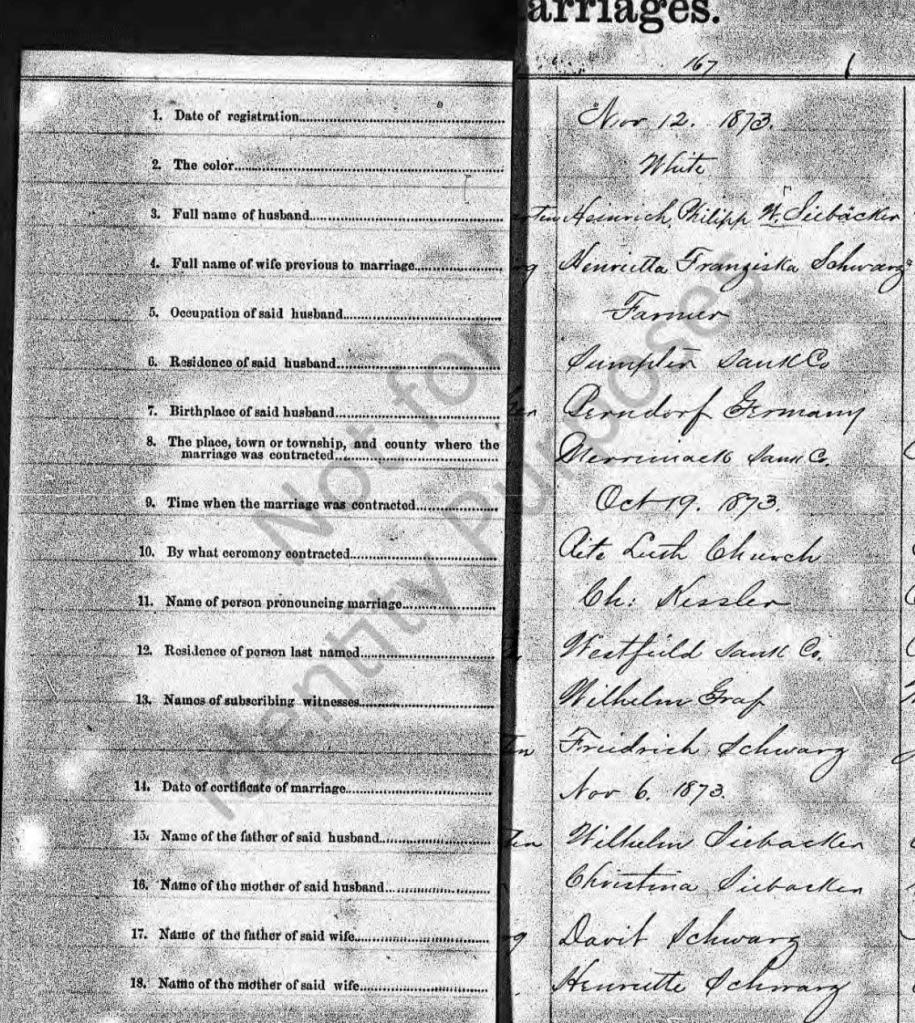 arriages.
167
1. Date of registration Nov 12. 1873.
2. The color White
3. Full name of husband Heinrich Philipp W. Siebäcker
4. Full name of wife previous to marriage Henrietta Franziska Schwarz
5. Occupation of said husband Farmer
6. Residence of said husband Sumpter Sauk Co
7. Birthplace of said husband Germany
8. The place, town or township, and county where the
marriage was contracted Merrimack Sauk Co.
9. Time when the marriage was contracted Oct 19. 1873.
10. By what ceremony contracted Rite Luth Church
11. Name of person pronouncing marriage Ch: Kessler
12. Residence of person last named Westfield Sauk Co.
13. Names of subscribing witnesses Wilhelm Graf
Friedrich Schwarz
14. Date of certificate of marriage Nov 6. 1873.
15. Name of the father of said husband Wilhelm Siebacker
16. Name of the mother of said husband Christina Siebacker
17. Name of the father of said wife Davit Schwarz
18. Name of the mother of said wife Henriette Schwarz
Not for
Identity Purposes